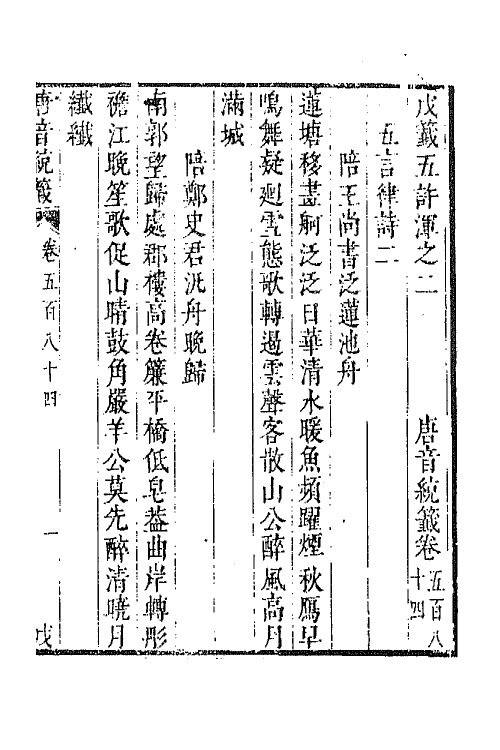 戊籤五許渾之二　唐音統籤卷五百八十四
五言律詩二
陪王尚書泛蓮池舟
蓮塘移畫舸泛泛日華清水暖魚頻躍煙秋鴈早
鳴舞疑廻雪態歌轉過雲聲客散山公醉風高月
滿城
陪鄭史君汎舟晚歸
南郭望歸處郡樓高卷簾平橋低皂蓋曲岸轉彤
襜江晚笙歌促山晴鼓角嚴羊公莫先醉清曉月
纖纖
唐音統籤　卷五百八十四　一　戊